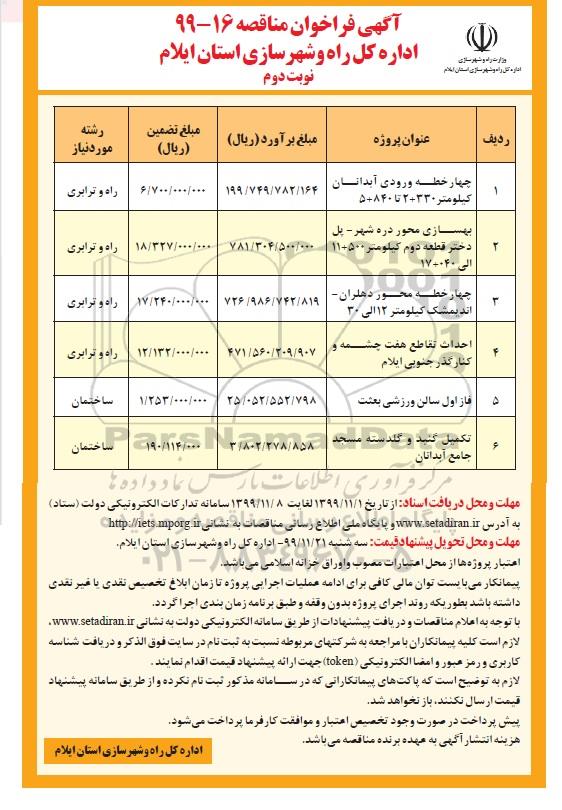 آگهی فراخوان مناقصه ۱۶-۹۹
اداره کل راه وشهرسازی استان ایلام
نوبت دوم
وزارت راه و شهرسازی
اداره کل راه وشهرسازی استان ایلام
ردیف عنوان پروژه مبلغ برآورد (ریال) مبلغ تضمین (ریال) رشته موردنیاز
۱ چهارخطه ورودی آبدانان کیلومتر ۳۳۰+۲ تا ۸۴۰+۵ ۱۹۹/۷۴۹/۷۸۲/۱۶۴ ۶/۷۰۰/۰۰۰/۰۰۰ راه و ترابری
۲ بهسازی محور دره شهر- پل دختر قطعه دوم کیلومتر ۵۰۰+۱۱ الی ۰۴۰+۱۷ ۷۸۱/۳۰۴/۵۰۰/۰۰۰ ۱۸/۳۲۷/۰۰۰/۰۰۰ راه و ترابری
۳ چهارخطه محور دهلران- اندیمشک کیلومتر ۱۲ الی ۳۰ ۷۲۶/۹۸۶/۷۴۲/۸۱۹ ۱۷/۲۴۰/۰۰۰/۰۰۰ راه و ترابری
۴ احداث تقاطع هفت چشمه و کنارگذر جنوبی ایلام ۴۷۱/۵۶۰/۲۰۹/۹۰۷ ۱۲/۱۳۲/۰۰۰/۰۰۰ راه و ترابری
۵ فاز اول سالن ورزشی بعثت ۲۵/۰۵۲/۵۵۲/۷۹۸ ۱/۲۵۳/۰۰۰/۰۰۰ ساختمان
۶ تکمیل گنبد و گلدسته مسجد جامع آبدانان ۳/۸۰۲/۲۷۸/۸۵۸ ۱۹۰/۱۱۴/۰۰۰ ساختمان
ParsNamadData
مرکز فرآوری اطلاعات پارس نماد داده ها
مهلت و محل دریافت اسناد: از تاریخ ۱۳۹۹/۱۱/۱ لغایت ۱۳۹۹/۱۱/۸ سامانه تدارکات الکترونیکی دولت (ستاد)
به آدرس www.setadiran.ir و پایگاه ملی اطلاع رسانی مناقصات به نشانی http://iets.mporg.ir
مهلت و محل تحویل پیشنهاد قیمت: سه شنبه ۹۹/۱۱/۲۱- اداره کل راه وشهرسازی استان ایلام.
اعتبار پروژه ها از محل اعتبارات مصوب و اوراق خزانه اسلامی می باشد.
پیمانکار می بایست توان مالی کافی برای ادامه عملیات اجرایی پروژه تا زمان ابلاغ تخصیص نقدی یا غیر نقدی
داشته باشد بطوریکه روند اجرای پروژه بدون وقفه و طبق برنامه زمان بندی اجرا گردد.
با توجه به اعلام مناقصات و دریافت پیشنهادات از طریق سامانه الکترونیکی دولت به نشانی www.setadiran.ir،
لازم است کلیه پیمانکاران با مراجعه به شرکتهای مربوطه نسبت به ثبت نام در سایت فوق الذکر و دریافت شناسه
کاربری و رمز عبور و امضا الکترونیکی (token) جهت ارائه پیشنهاد قیمت اقدام نمایند.
لازم به توضیح است که پاکت های پیمانکارانی که در سامانه مذکور ثبت نام نکرده و از طریق سامانه پیشنهاد
قیمت ارسال نکنند، باز نخواهد شد.
پیش پرداخت در صورت وجود تخصیص اعتبار و موافقت کارفرما پرداخت می شود.
هزینه انتشار آگهی به عهده برنده مناقصه می باشد.
اداره کل راه وشهرسازی استان ایلام